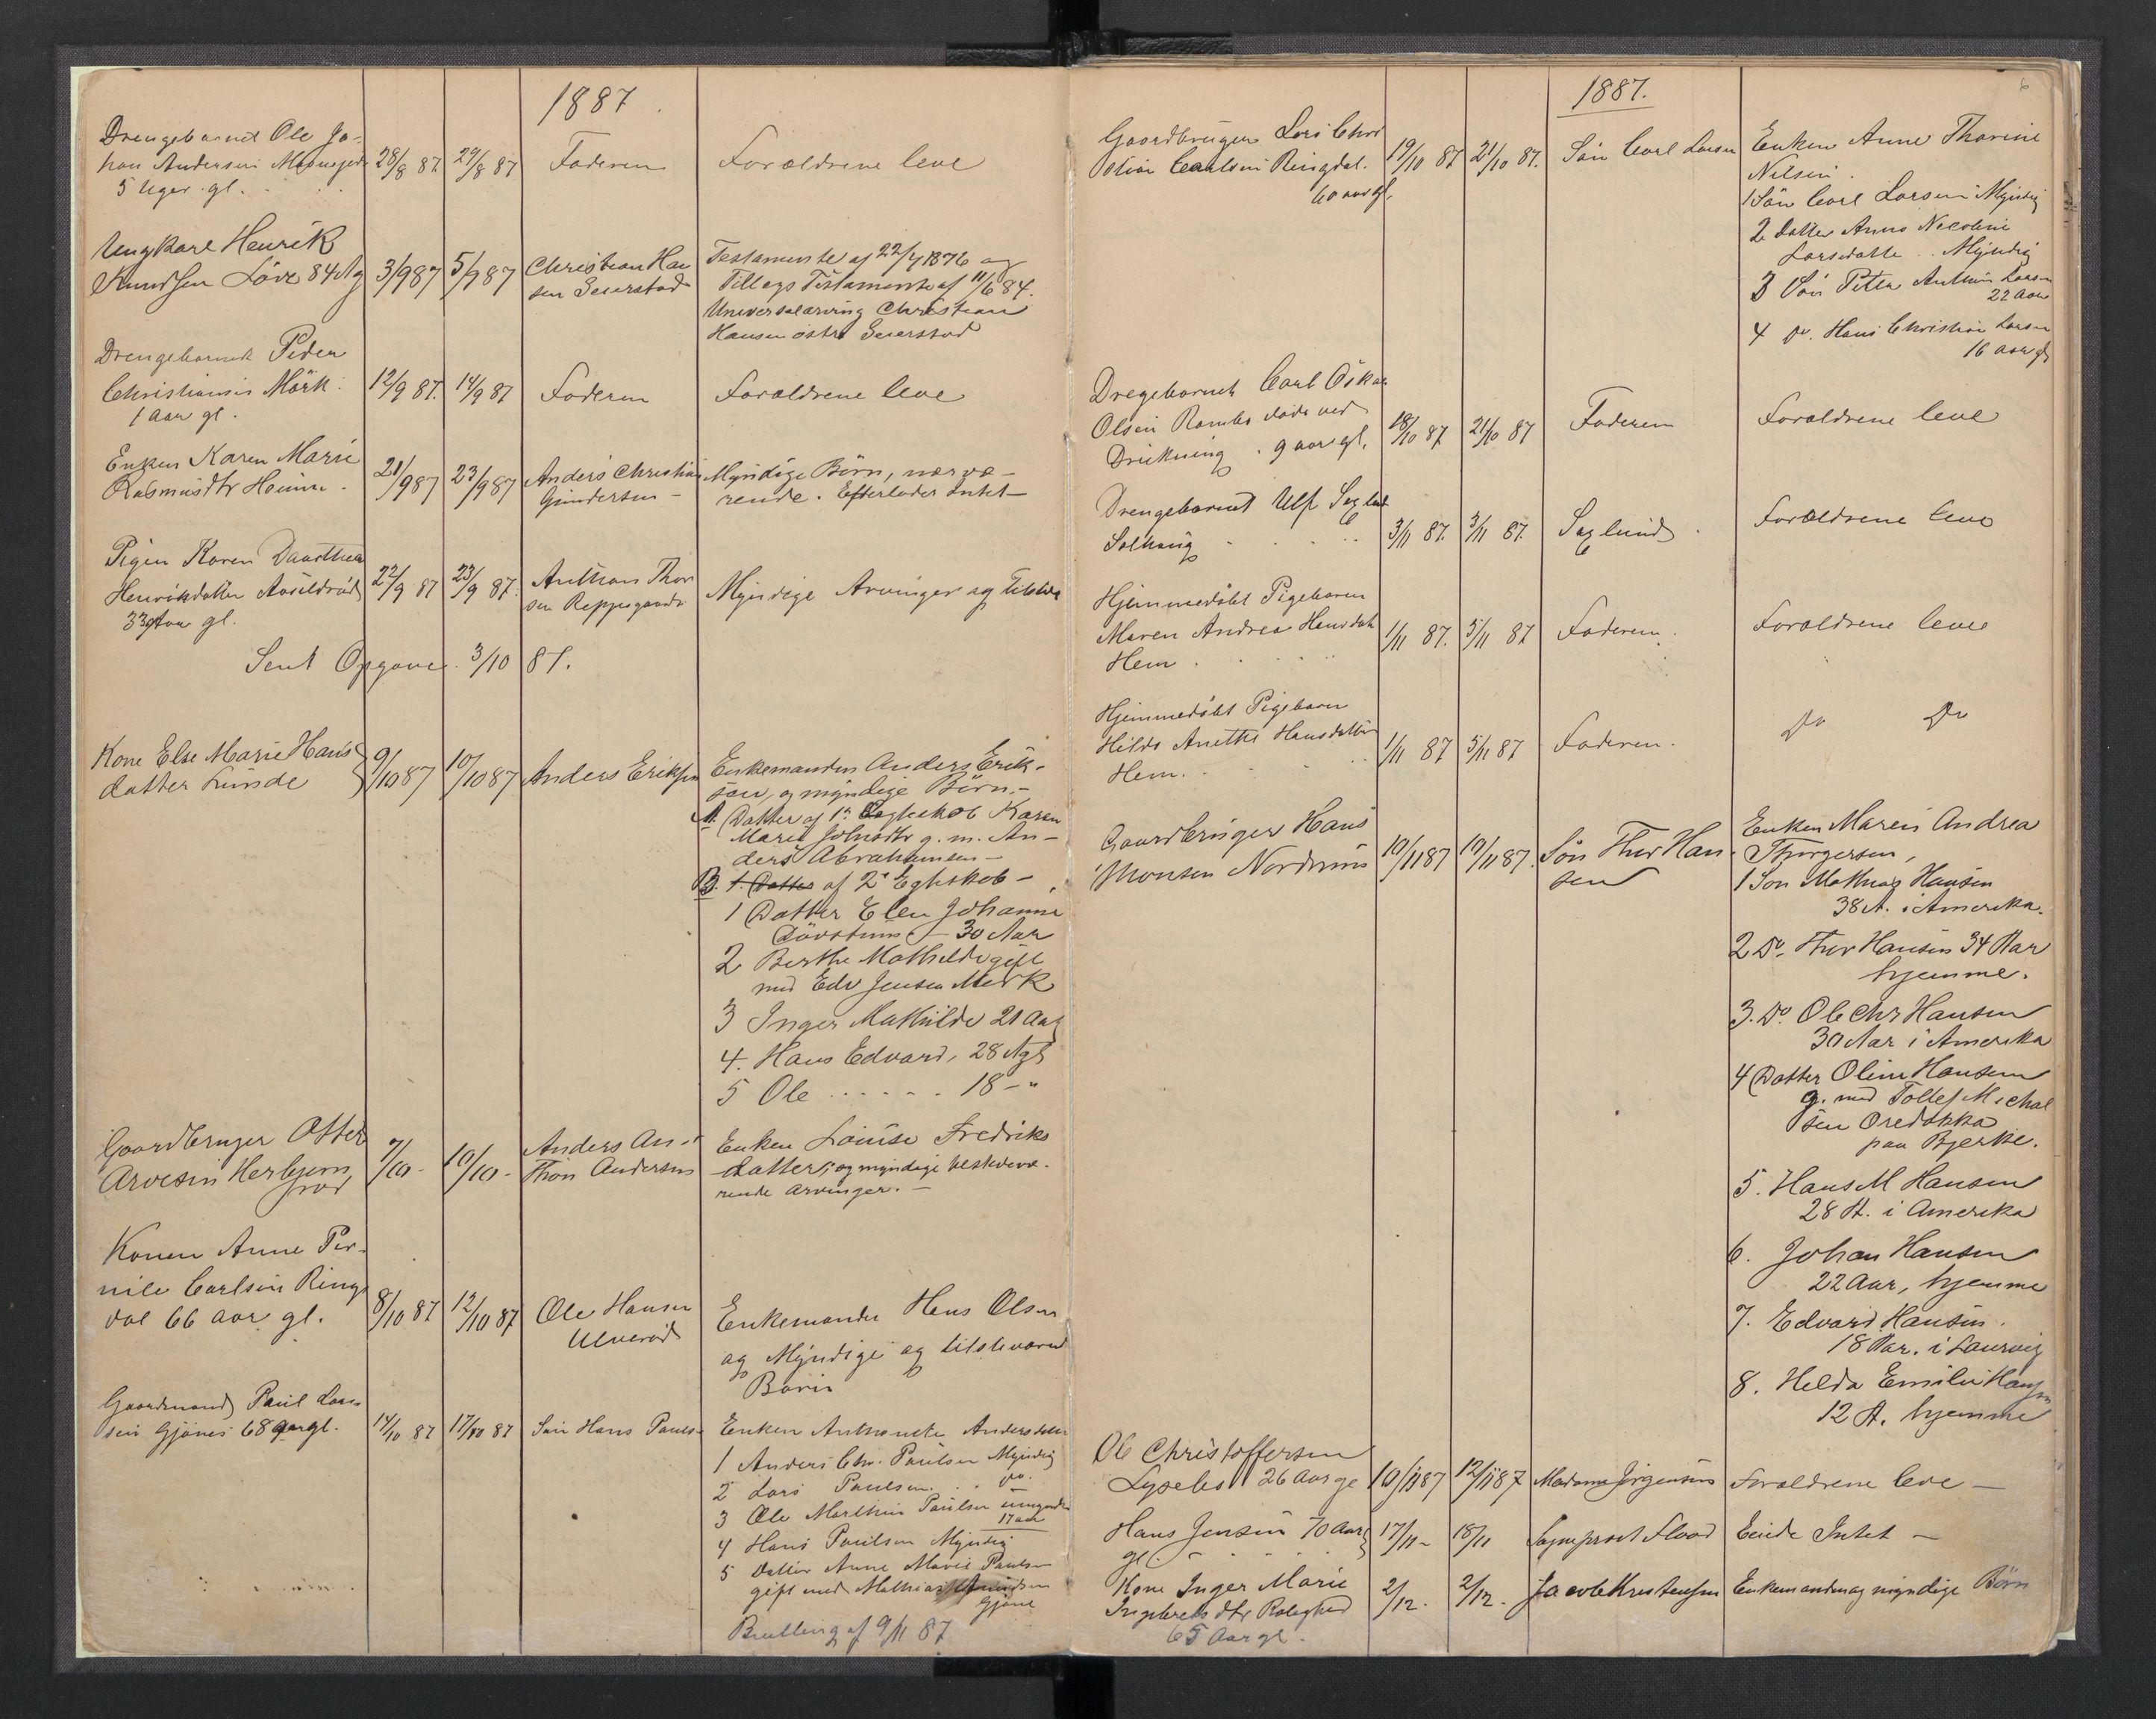 1887.
Drengebarnet Ole Jo-
han Andersen
5 Uger gl.
28/8 87. 29/8 87
Faderen
Forældrene leve
Ungkarl Henrik
Knudssen Löve 84 Ag
3/9 87 5/9 87
Christian Han
sen Seierstad
Testamente af 22/7 1876 og
Tillegs Testamente af 11/6 84.
Universalarving Christian
Hansen östre Seierstad
Drengebarnet Peder
Christiansen Mörk.
1 Aar gl.
12/9 87. 14/9 87
Faderen
Forældrene leve
Enken Karen Marie
Rasmusdtr
21/9 87 23/9 87
Anders Christian
Gundersen -
Myndige Börn, nærvæ-
rende. Efterlader Intet -
Pigen Karen Daarthea
Henrikdatter
33 Aar gl.
22/9 87 23/9 87.
Anthon Thor
sen
Myndige Arvinger og
Sent Opgave 3/10 87.
Kone Else Marie Hans
datter Lunde
9/10 87 10/10 87
Anders Eriksen
Enkemanden Anders Erik-
sen, og myndige Börn. -
A. Datter af 1ste Egteskab Karen
Marie Johnsdtr g. m. An-
ders Abrahamsen -
B. 1. Datter af 2det Egteskab -
1 Datter Elen Johanne
Dövstum - 30 Aar
2 Berthe Mathilde gift
med Edv Jensen Mörk
3 Inger Mathilde 21 Aar
4. Hans Edvard, 28 Agl
5 Ole . . . . . . 18 - "
Gaardbruger Otter
Arvesen Herbjørns
rød
7/10 - 10/10 -
Anders An-
thon Andersen
Enken Louise Fredriks
datter, og myndige tilstedevæ-
rende Arvinger. -
Konen Anne Per-
nile Carlsen Ring
dal 66 aar gl.
8/10 87 12/10 87
Ole Hansen
Ulverød
Enkemanden Hans Olsen
og Myndige og tilsteværed
Börn
Gaardmand Paul Lar-
sen Gjönes 68 aar gl.
14/10 87 17/10 87
Sön Hans Pauls.
Enken Anthonette Andersdatter
1 Anders Chr. Paulsen Myndig
2 Lars Paulsen . . do.
3 Ole Marthin Paulsen umyndig
17 aar
4 Hans Paulsen Myndig
5 Datter Anne Marie Paulsen
gift med Mathias Amundsen
Gjöne
af 9/11 87
6
1887.
Gaardbruger Lars Chri
stian Carlsen Ringdal.
60 aar gl.
19/10 87 21/10 87.
Sön Carl Larsen
Enken Anne Thorine
Nilsen.
1 Sön Carl Larsen Myndig
2 datter Anne Nicoline
Larsdatter . Myndig
3 Sön Peter Anthon Larsen
22 Aar
4 do. Hans Christian Larsen
16 aar gl
Dregebarnet Carl Oskar
Olsen Rambo døde ved
Drukning . 9 aar gl.
18/10 87 21/10 87
Faderen
Forældrene leve
Drengebarnet Ulf Saxlund
Solhaug
3/11 87. 3/11 87.
Saxlund
Forældrene leve
Hjemmedöbt Pigebarn
Maren Andrea Hansdatr
Hem .
1/11 87. 5/11 87
Faderen.
Forældrene leve
Hjemmedöbt Pigebarn
Hilda Anette Hansdatter
Hem.
1/11 87 5/11 87
Faderen.
do do
Gaardbruger Hans
Monsen Nordrum
10/11 87 10/11 87.
Sön Thor Han
sen
Enken Maren Andrea
Thorgersen,
1 Sön Mathias Hansen
38 A. i Amerika.
2 Do. Thor Hansen 34 Aar
hjemme.
3. Do Ole Chr Hansen
30 Aar i Amerika
4 Datter Oline Hansen
g. med Tollef Michal
sen Oredalkka
paa Bjerke.
5. Hans M Hansen
28 A. i Amerika
6. Johan Hansen
22 Aar, hjemme
7. Edvard Hansen.
18 Aar. i Laurvig
8. Helda Emilie Hansen
12 A. hjemme
Ole Christoffersen
Lysebo 26 Aar gl
10/11 87 12/11 87
Madame Jörgensen
Forældrene leve -
Hans Jensen 70 Aar
gl.
17/11 - 18/11
Sogneprest Flood
Eiede Intet -
Kone Inger Marie
Ingebretsdtr Rolighed
65 Aar gl.
2/12. 2/12.
Jacob Kristensen
Enkemanden og myndige Börn